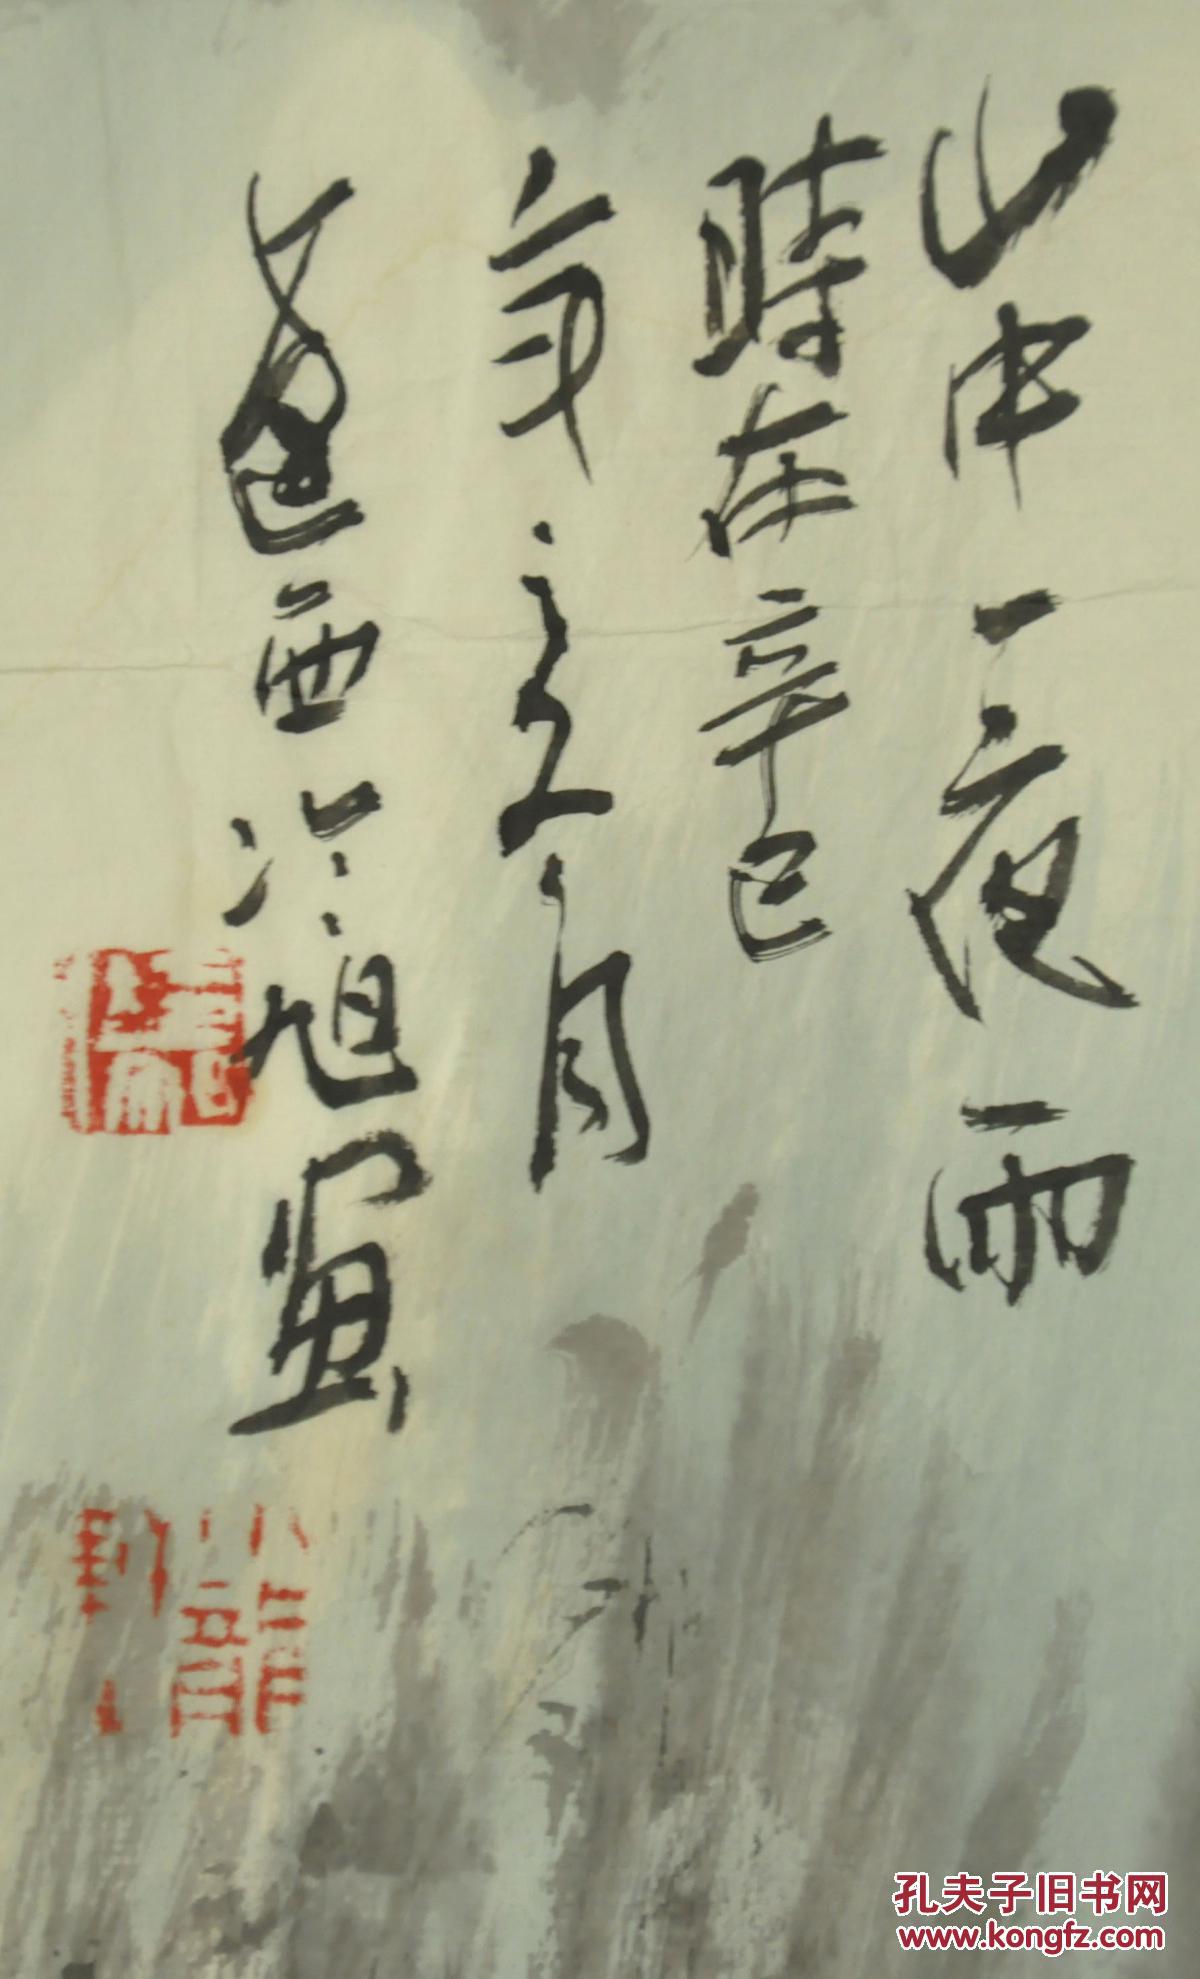 山中一夜雨
時在辛巳
年之夏月
西泠旭画
孔夫子旧书网
www.kongfz.com